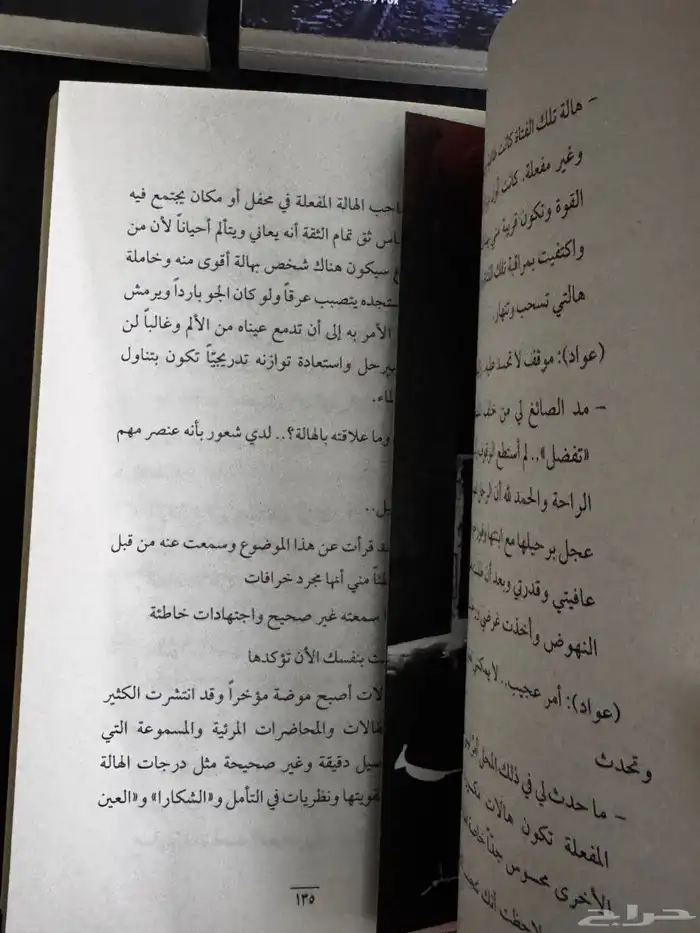 - هالة تلك الفتاة كانت
وغير مفعلة. كانت
القوة وتكون قريبة
واكتفيت بمراقبة تلك
هالتي تسحب وتنهار.
(عواد): موقف لا تحسد عليه
- مد الصائغ لي من خلف
«تفضل».. لم أستطع الوقوف
الراحة والحمد لله أن
عجل برحيلها مع ابنتها
عافيتي وقدرتي وبعد أن
النهوض وأخذت غرضي
(عواد): أمر عجيب.. لا يمكنني
وتحدث
- ما حدث لي في ذلك المحل
المفعلة تكون هالات
الأخرى محسوس جداً خاصة
لاحظت أنك
احب الهالة المفعلة في محفل أو مكان يجتمع فيه
اس ثق تمام الثقة أنه يعاني ويتألم أحياناً لأن من
سيكون هناك شخص بهالة أقوى منه وخاملة
ستجده يتصبب عرقاً ولو كان الجو بارداً ويرمش
الأمر به إلى أن تدمع عيناه من الألم وغالباً لن
يرحل واستعادة توازنه تدريجيّاً تكون بتناول
لماء.
وما علاقته بالهالة؟.. لدي شعور بأنه عنصر مهم
يل..
قد قرأت عن هذا الموضوع وسمعت عنه من قبل
ظنّاً مني أنها مجرد خرافات
سمعته غير صحيح واجتهادات خاطئة
ت بنفسك الأن تؤكدها
لات أصبح موضة مؤخراً وقد انتشرت الكثير
هالات والمحاضرات المرئية والمسموعة التي
صيل دقيقة وغير صحيحة مثل درجات الهالة
تقويتها ونظريات في التأمل و«الشكارا» و«العين
١٣٥
حراج